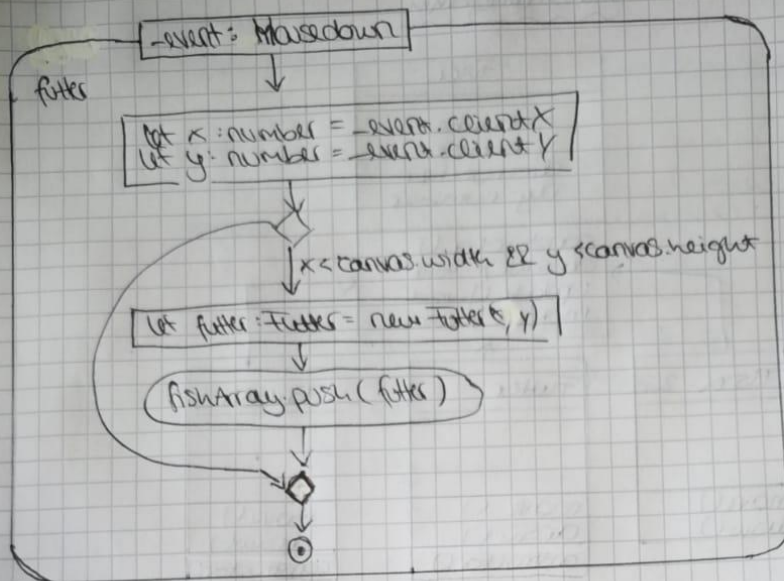 _event: Mousedown
futter
let x: number = _event.clientX
let y: number = _event.clientY
x < canvas.width && y < canvas.height
let futter: Futter = new Futter(x, y)
fishArray.push(futter)